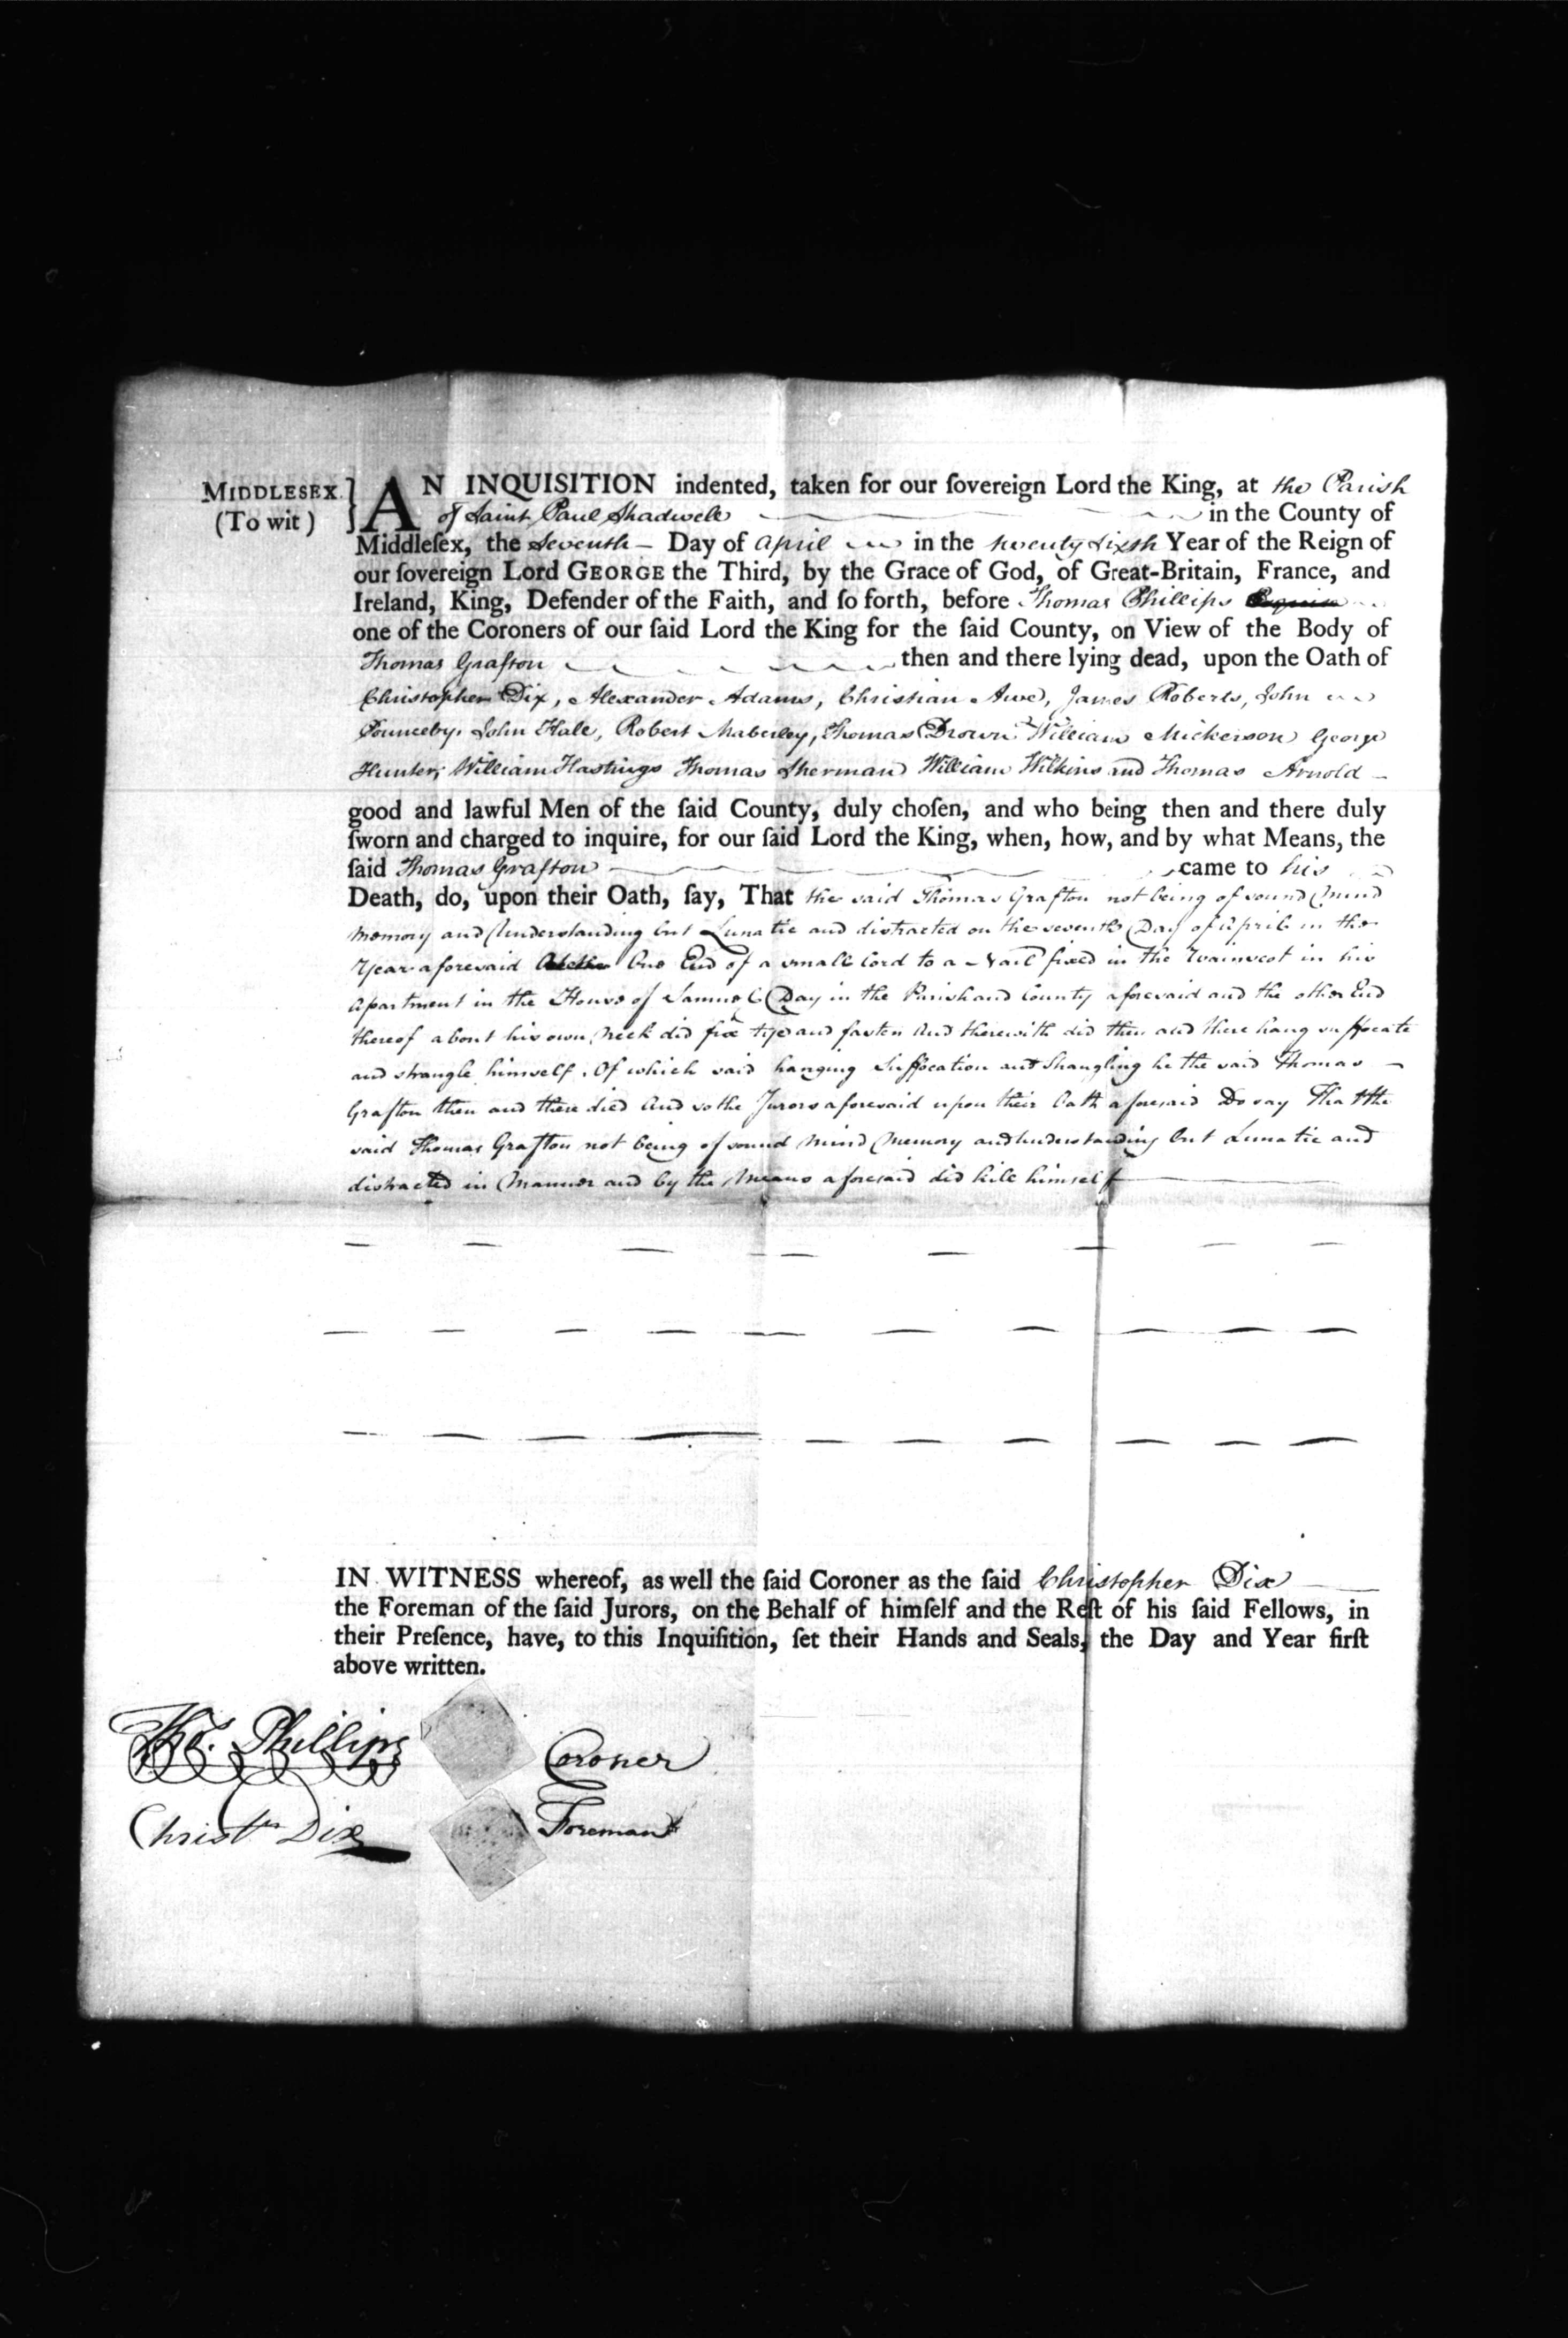 MIDDLESEX } AN INQUISITION indented, taken for our ſovereign Lord the King, at the Parish
(To wit) } of Saint Paul Shadwell in the County of
Middleſex, the Seventh Day of April in the twenty sixth Year of the Reign of
our ſovereign Lord GEORGE the Third, by the Grace of God, of Great-Britain, France, and
Ireland, King, Defender of the Faith, and ſo forth, before Thomas Phillips
one of the Coroners of our ſaid Lord the King for the ſaid County, on View of the Body of
Thomas Grafton then and there lying dead, upon the Oath of
Christopher Dix, Alexander Adams, Christian Awe, James Roberts, John
Pounceby, John Hale, Robert Maberley, Thomas Brown, William Mickerson George
Hunter, William Hastings Thomas Sherman William Wilkins and Thomas Arnold
good and lawful Men of the ſaid County, duly choſen, and who being then and there duly
ſworn and charged to inquire, for our ſaid Lord the King, when, how, and by what Means, the
ſaid Thomas Grafton came to his
Death, do, upon their Oath, ſay, That the said Thomas Grafton not being of sound Mind
Memory and Understanding but Lunatic and distracted on the seventh Day of April in the
Year aforesaid One End of a small Cord to a Nail fixed in the Wainscot in his
Apartment in the House of Samuel Day in the Parish and County aforesaid and the other End
thereof about his own Neck did fix tye and fasten And therewith did then and there hang suffocate
and strangle himself. Of which said hanging Suffocation and Strangling he the said Thomas
Grafton then and there died And so the Jurors aforesaid upon their Oath aforesaid Do say That the
said Thomas Grafton not being of sound Mind Memory and understanding but Lunatic and
distracted in Manner and by the Means aforesaid did kill himself
IN WITNESS whereof, as well the ſaid Coroner as the ſaid Christopher Dix
the Foreman of the ſaid Jurors, on the Behalf of himſelf and the Reſt of his ſaid Fellows, in
their Preſence, have, to this Inquiſition, ſet their Hands and Seals, the Day and Year firſt
above written.
Tho.s Phillips Coroner
Christ.r Dix Foreman